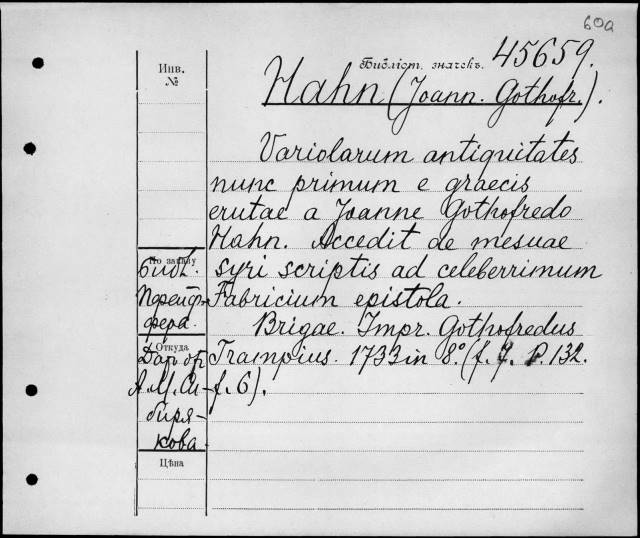 60a
Инв.
№
Библіот. значекъ.
45659.
Hahn (Joann. Gothofr.).
Variolarum antiquitates
nunc primum e graecis
erutae a Joanne Gothofredo
Hahn. Accedit de mesuae
syri scriptis ad celeberrimum
Fabricium epistola.
Brigae. Impr. Gothofredus
Trampius. 1733 in 8.° (f. f. P. 132.
f. 6).
По заказу
Библ.
Пфейф-
фера.
Откуда
Даръ отъ
А. М. Си-
биря-
кова.
Цѣна